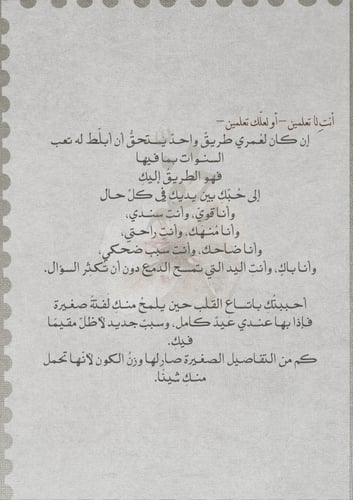 أنتِ لا تعلمين – أو لعلّك تعلمين –
إن كان لعُمري طريقٌ واحدٌ يستحقُّ أن أبلّط له تعب
السنوات بما فيها
فهو الطريق إليكِ
إلى حُبّك بين يديك في كلّ حال
وأنا قويّ، وأنتِ سندي،
وأنا مُنهك، وأنتِ راحتي،
وأنا ضاحك، وأنتِ سبب ضحكي،
وأنا باكٍ، وأنتِ اليد التي تمسح الدمع دون أن تُكثر السؤال.
احببتُك باتساع القلب حين يلمحُ منك لفتةً صغيرة
فإذا بها عندي عيدٌ كامل، وسببٌ جديد لأظلّ مقيمًا
فيك.
كم من التفاصيل الصغيرة صار لها وزنُ الكون لأنها تحمل
منكِ شيئًا.